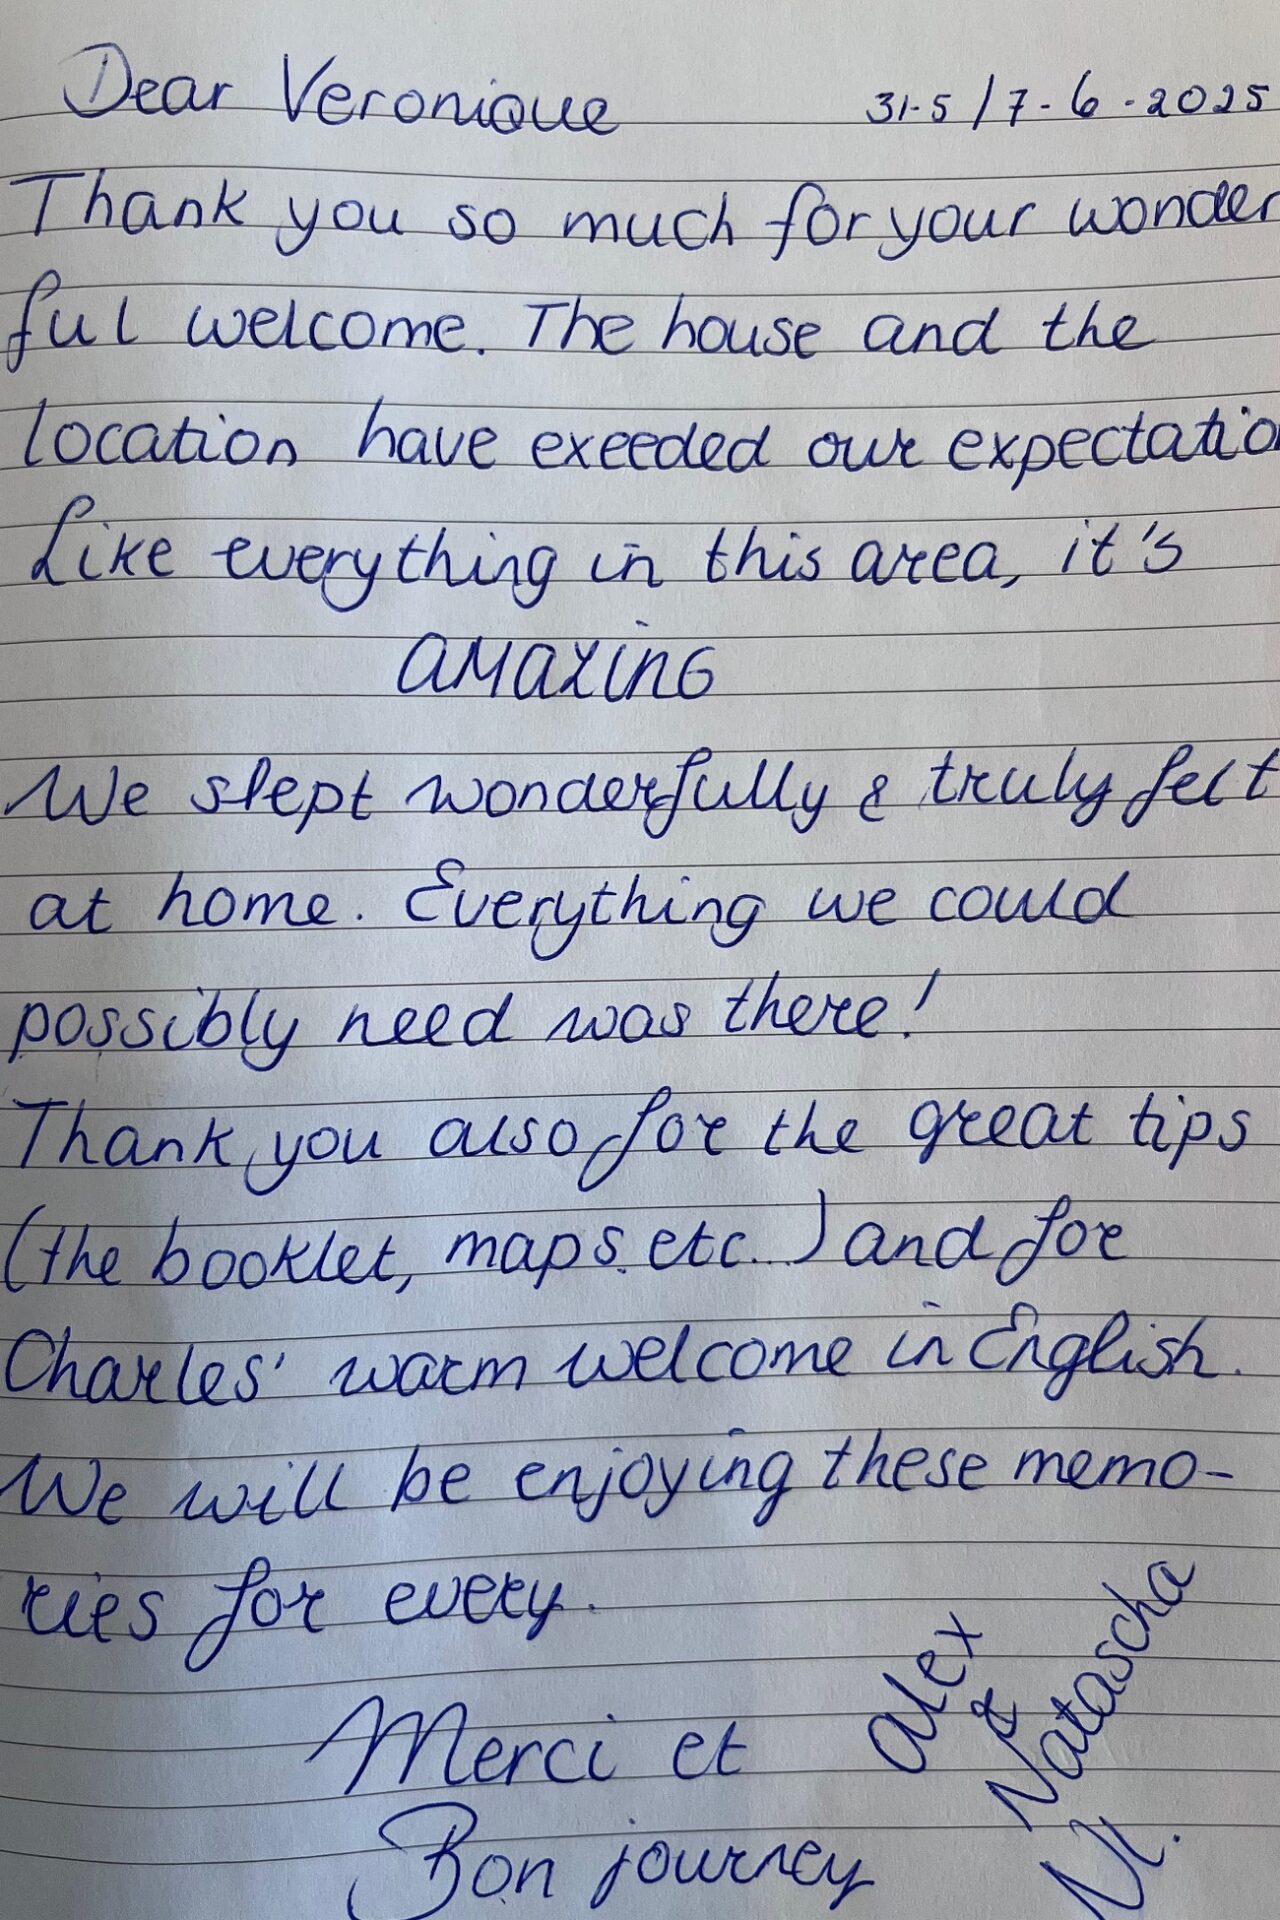 Dear Veronique 31-5/7-6-2025
Thank you so much for your wonder
ful welcome. The house and the
location have exeeded our expectatio
Like everything in this area, it's
amazing
We slept wonderfully & truly felt
at home. Everything we could
possibly need was there!
Thank you also for the great tips
(the booklet, maps etc...) and for
Charles' warm welcome in English.
We will be enjoying these memo-
ries for every.
Merci et
Bon journey
Alex
&
Natascha